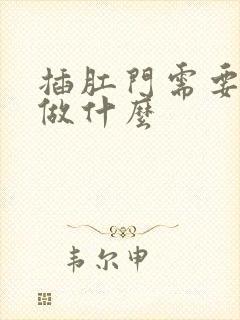 插肛門需要
做什麼
韦尔申